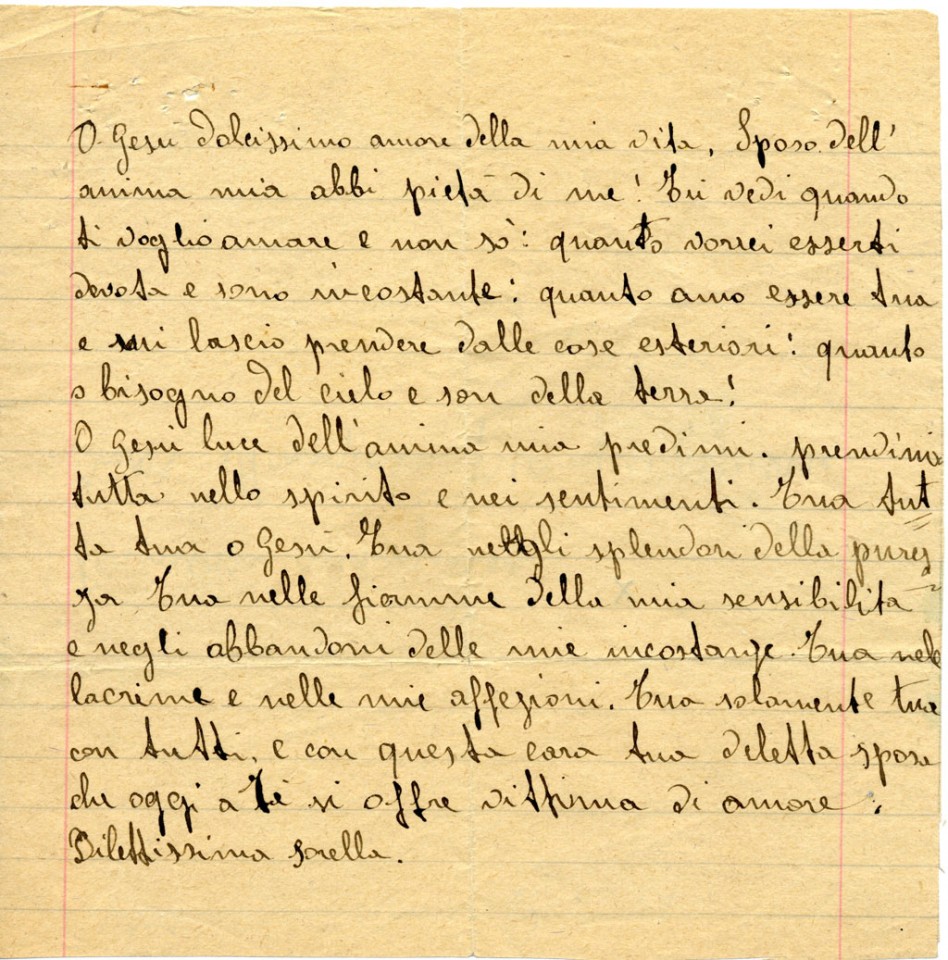 O Gesù dolcissimo amore della mia vita, Sposo dell'
anima mia abbi pietà di me! Tu vedi quando
ti voglio amare e non sò: quanto vorrei esserti
devota e sono incostante: quanto amo essere tua
e mi lascio prendere dalle cose esteriori: quanto
o bisogno del cielo e son della terra!
O Gesù luce dell'anima mia predimi. prendimi
tutta nello spirito e nei sentimenti. Tua tut
ta tua o Gesù. Tua negli splendori della purez
za Tua nelle fiamme della mia sensibilita
e negli abbandoni delle mie incostanze. Tua nelle
lacrime e nelle mie affezioni. Tua solamente tua
con tutti, e con questa cara tua deletta sposa
che oggi a Te si offre vittima di amore.
Dilettissima sorella.